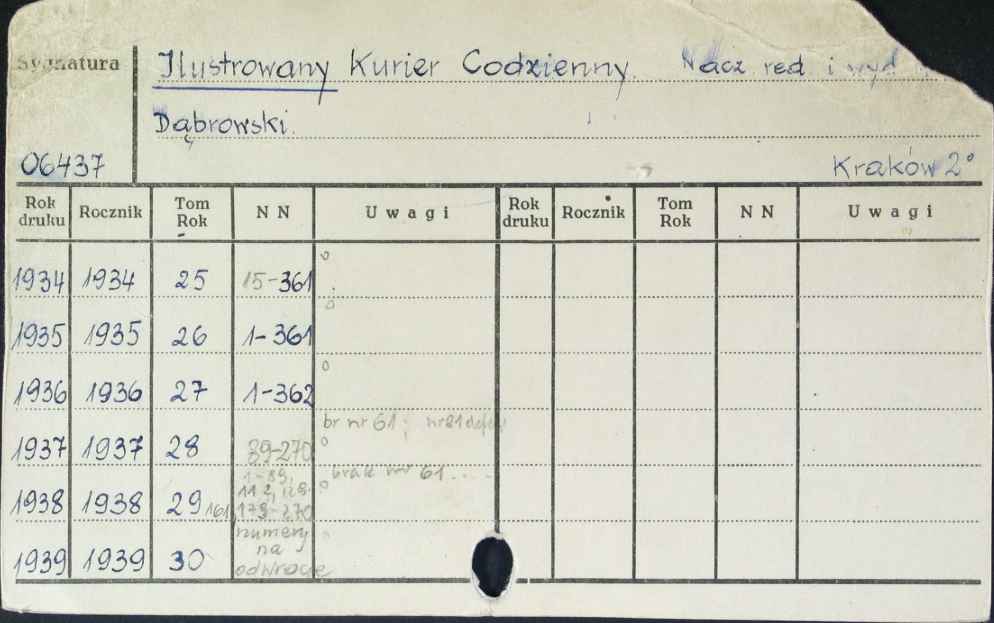 Sygnatura
Ilustrowany Kurier Codzienny. Nacz red i wyd
Dąbrowski.
06437
Kraków 2°
Rok druku Rocznik Tom Rok NN Uwagi Rok druku Rocznik Tom Rok NN Uwagi
1934 1934 25 15-361
1935 1935 26 1-361
1936 1936 27 1-362
br nr 61;
1937 1937 28 89-270
brak nr 61....
1938 1938 29 161
179-270
1939 1939 30 numery
na
odwrocie